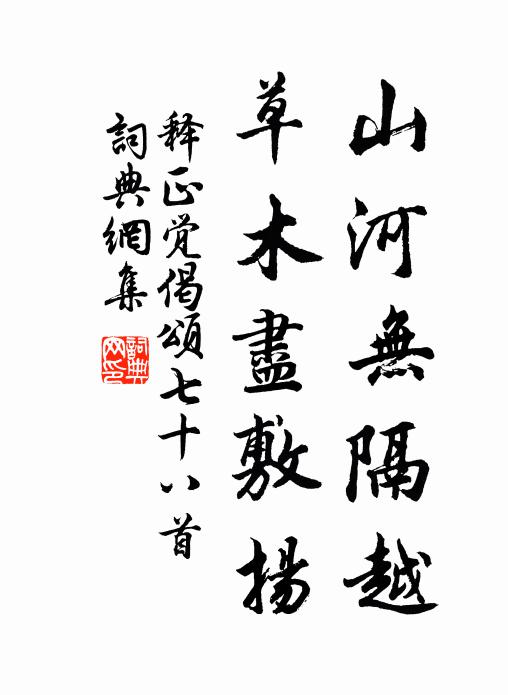 山河無隔越
草木盡敷揚
释正觉偈頌七十八首
詞典網集
詞典
网印